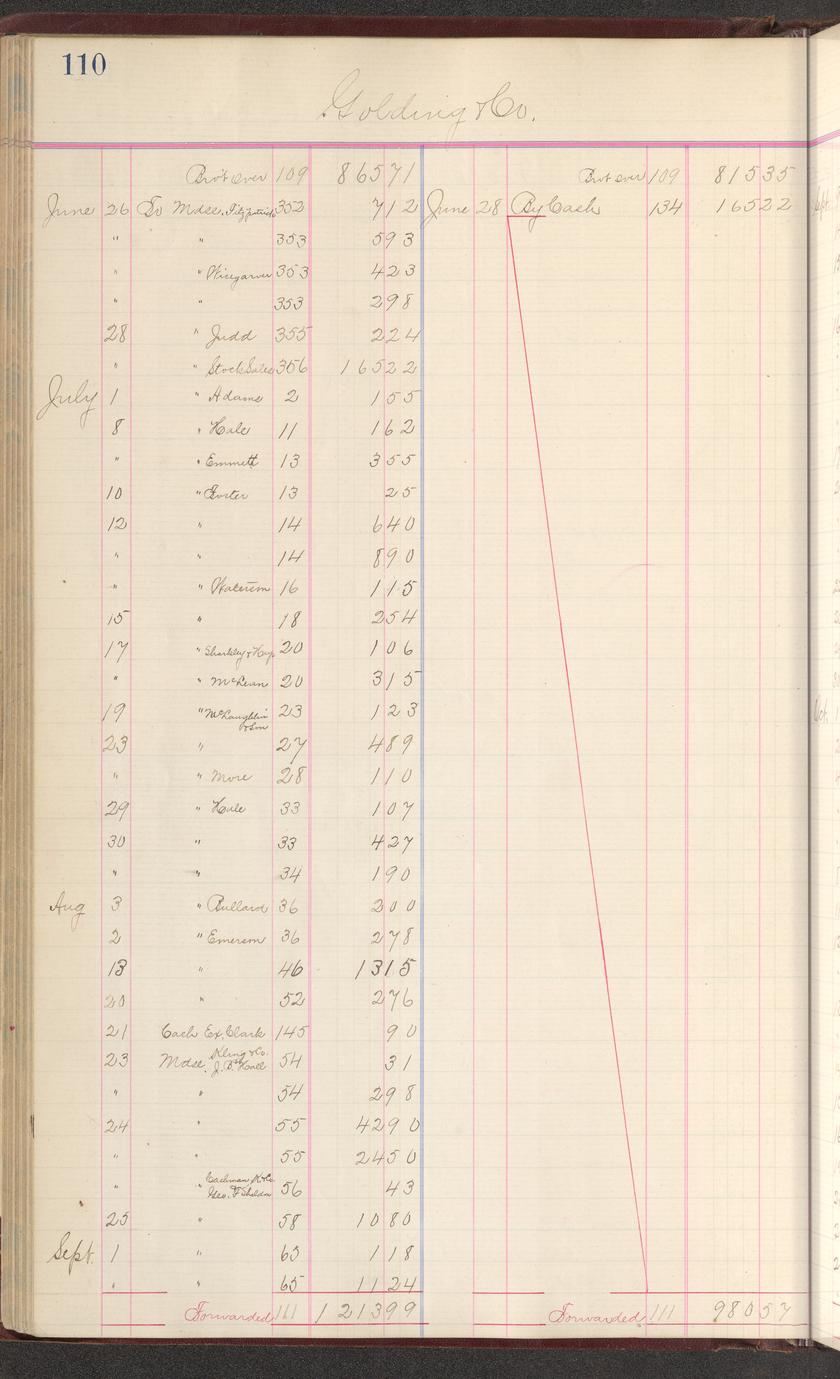 110
Golding & Co.
Bro't over 109 86571 Bro't over 109 81535
June 26 To Mdse. Fitzpatrick 352 712 June 28 By Cash 134 16522
" " 353 593
" " Winegarner 353 423
" " 353 298
28 " Judd 355 224
" " Stock Sales 356 16522
July 1 " Adams 2 155
8 " Hale 11 162
" " Emmett 13 355
10 " Foster 13 25
12 " 14 640
" " 14 890
" " 16 115
15 " 18 254
17 " Sharkley & Hays 20 106
" " McLean 20 315
19 " McLaughlin & Son 23 123
23 " 27 489
" " More 28 110
29 " Hale 33 107
30 " 33 427
" " 34 190
Aug 3 " Bullard 36 200
2 " Emerson 36 278
13 " 46 1315
20 " 52 276
21 Cash Ex. Clark 145 90
23 Mdse. Kling & Co. J. B. Hall 54 31
" " 54 298
24 " 55 4290
" " 55 2450
" " Geo. F Sheldon 56 43
25 " 58 1080
Sept. 1 " 65 118
" " 65 1124
Forwarded 111 121399 Forwarded 111 98057